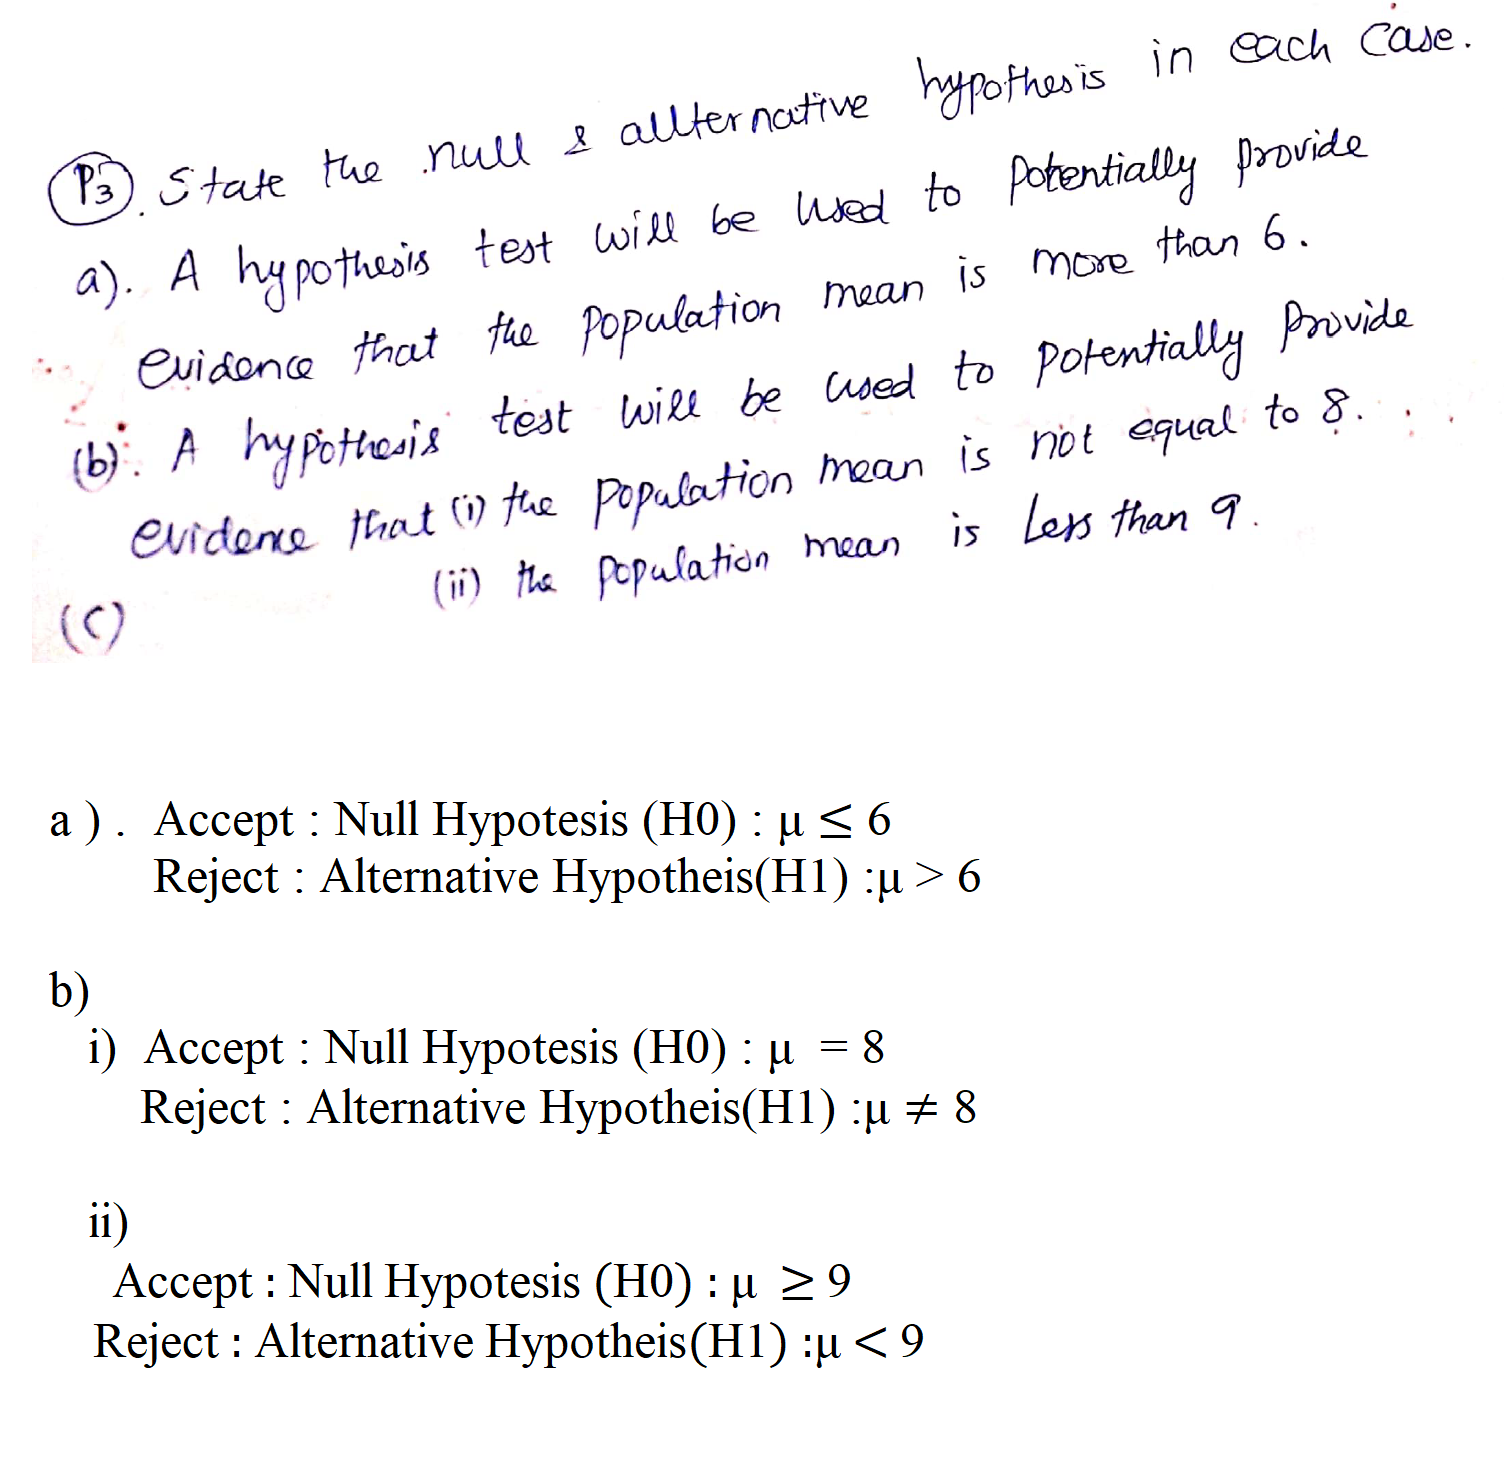 P3. State the null & allternative hypothesis in each case.
a). A hypothesis test will be used to potentially provide
evidence that the population mean is more than 6.
(b). A hypothesis test will be used to potentially provide
evidence that (i) the population mean is not equal to 8.
(ii) the population mean is less than 9.
(C)
a ) . Accept : Null Hypotesis (H0) : μ ≤ 6
Reject : Alternative Hypotheis(H1) :μ > 6
b)
i) Accept : Null Hypotesis (H0) : μ = 8
Reject : Alternative Hypotheis(H1) :μ ≠ 8
ii)
Accept : Null Hypotesis (H0) : μ ≥ 9
Reject : Alternative Hypotheis(H1) :μ < 9